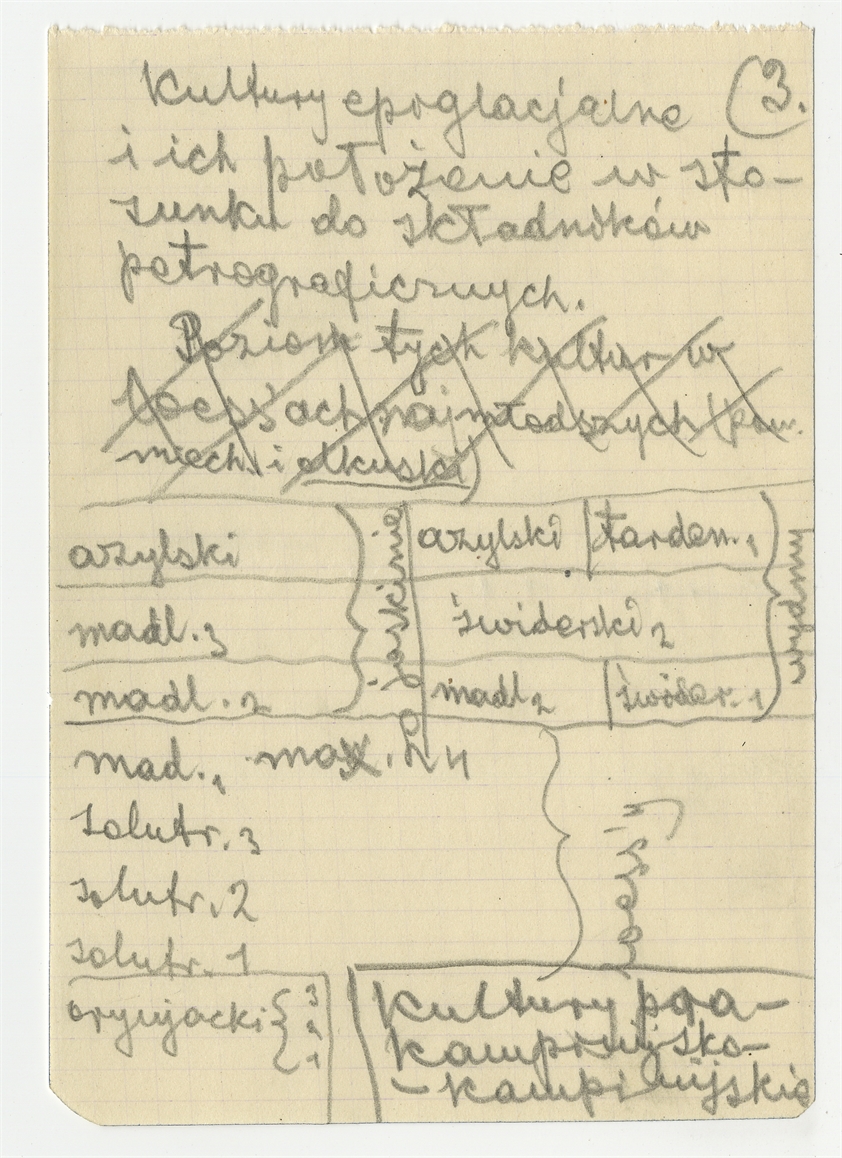 (3.
Kultury epiglacjalne
i ich położenie w sto-
sunku do składników
petrograficznych.
Poziom tych kultur w
loessach najmłodszych (pow.
miech. i olkuski)
azylski jaskinie azylski tarden. 1 wydmy
madl. 3 świderski 2
madl. 2 madl 2 świder. 1
mad. 1 max.
solutr. 3
solutr. 2 loess
solutr. 1
oryniacki 3 2 1 Kultury pra-
kampinijsko-
-kampinijskie